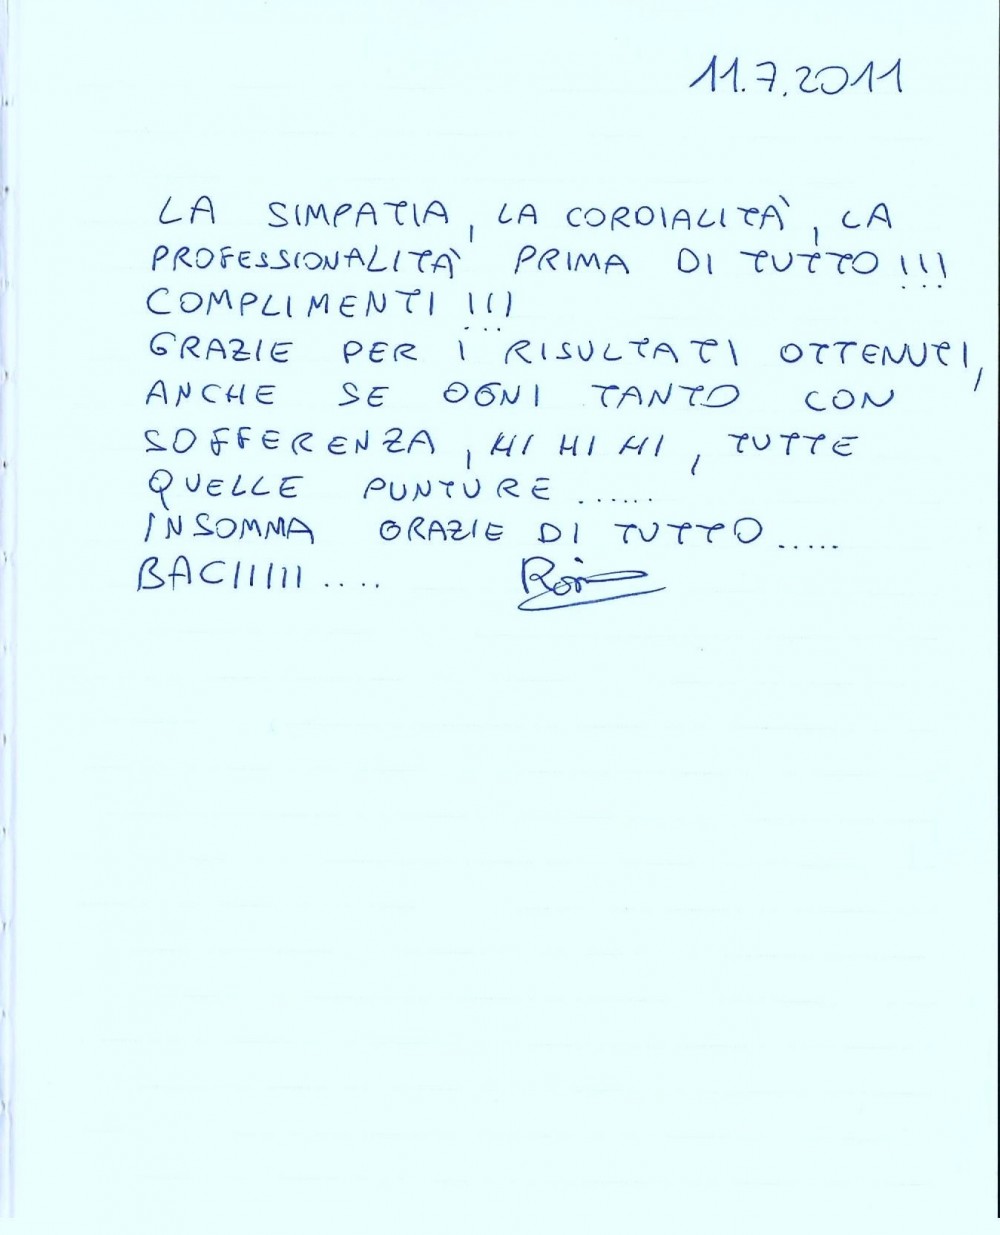 11.7.2011
LA SIMPATIA, LA CORDIALITÀ, LA
PROFESSIONALITÀ PRIMA DI TUTTO!!!
COMPLIMENTI!!!
GRAZIE PER I RISULTATI OTTENUTI,
ANCHE SE OGNI TANTO CON
SOFFERENZA, HI HI HI, TUTTE
QUELLE PUNTURE ......
INSOMMA GRAZIE DI TUTTO .....
BACIIIIII ....